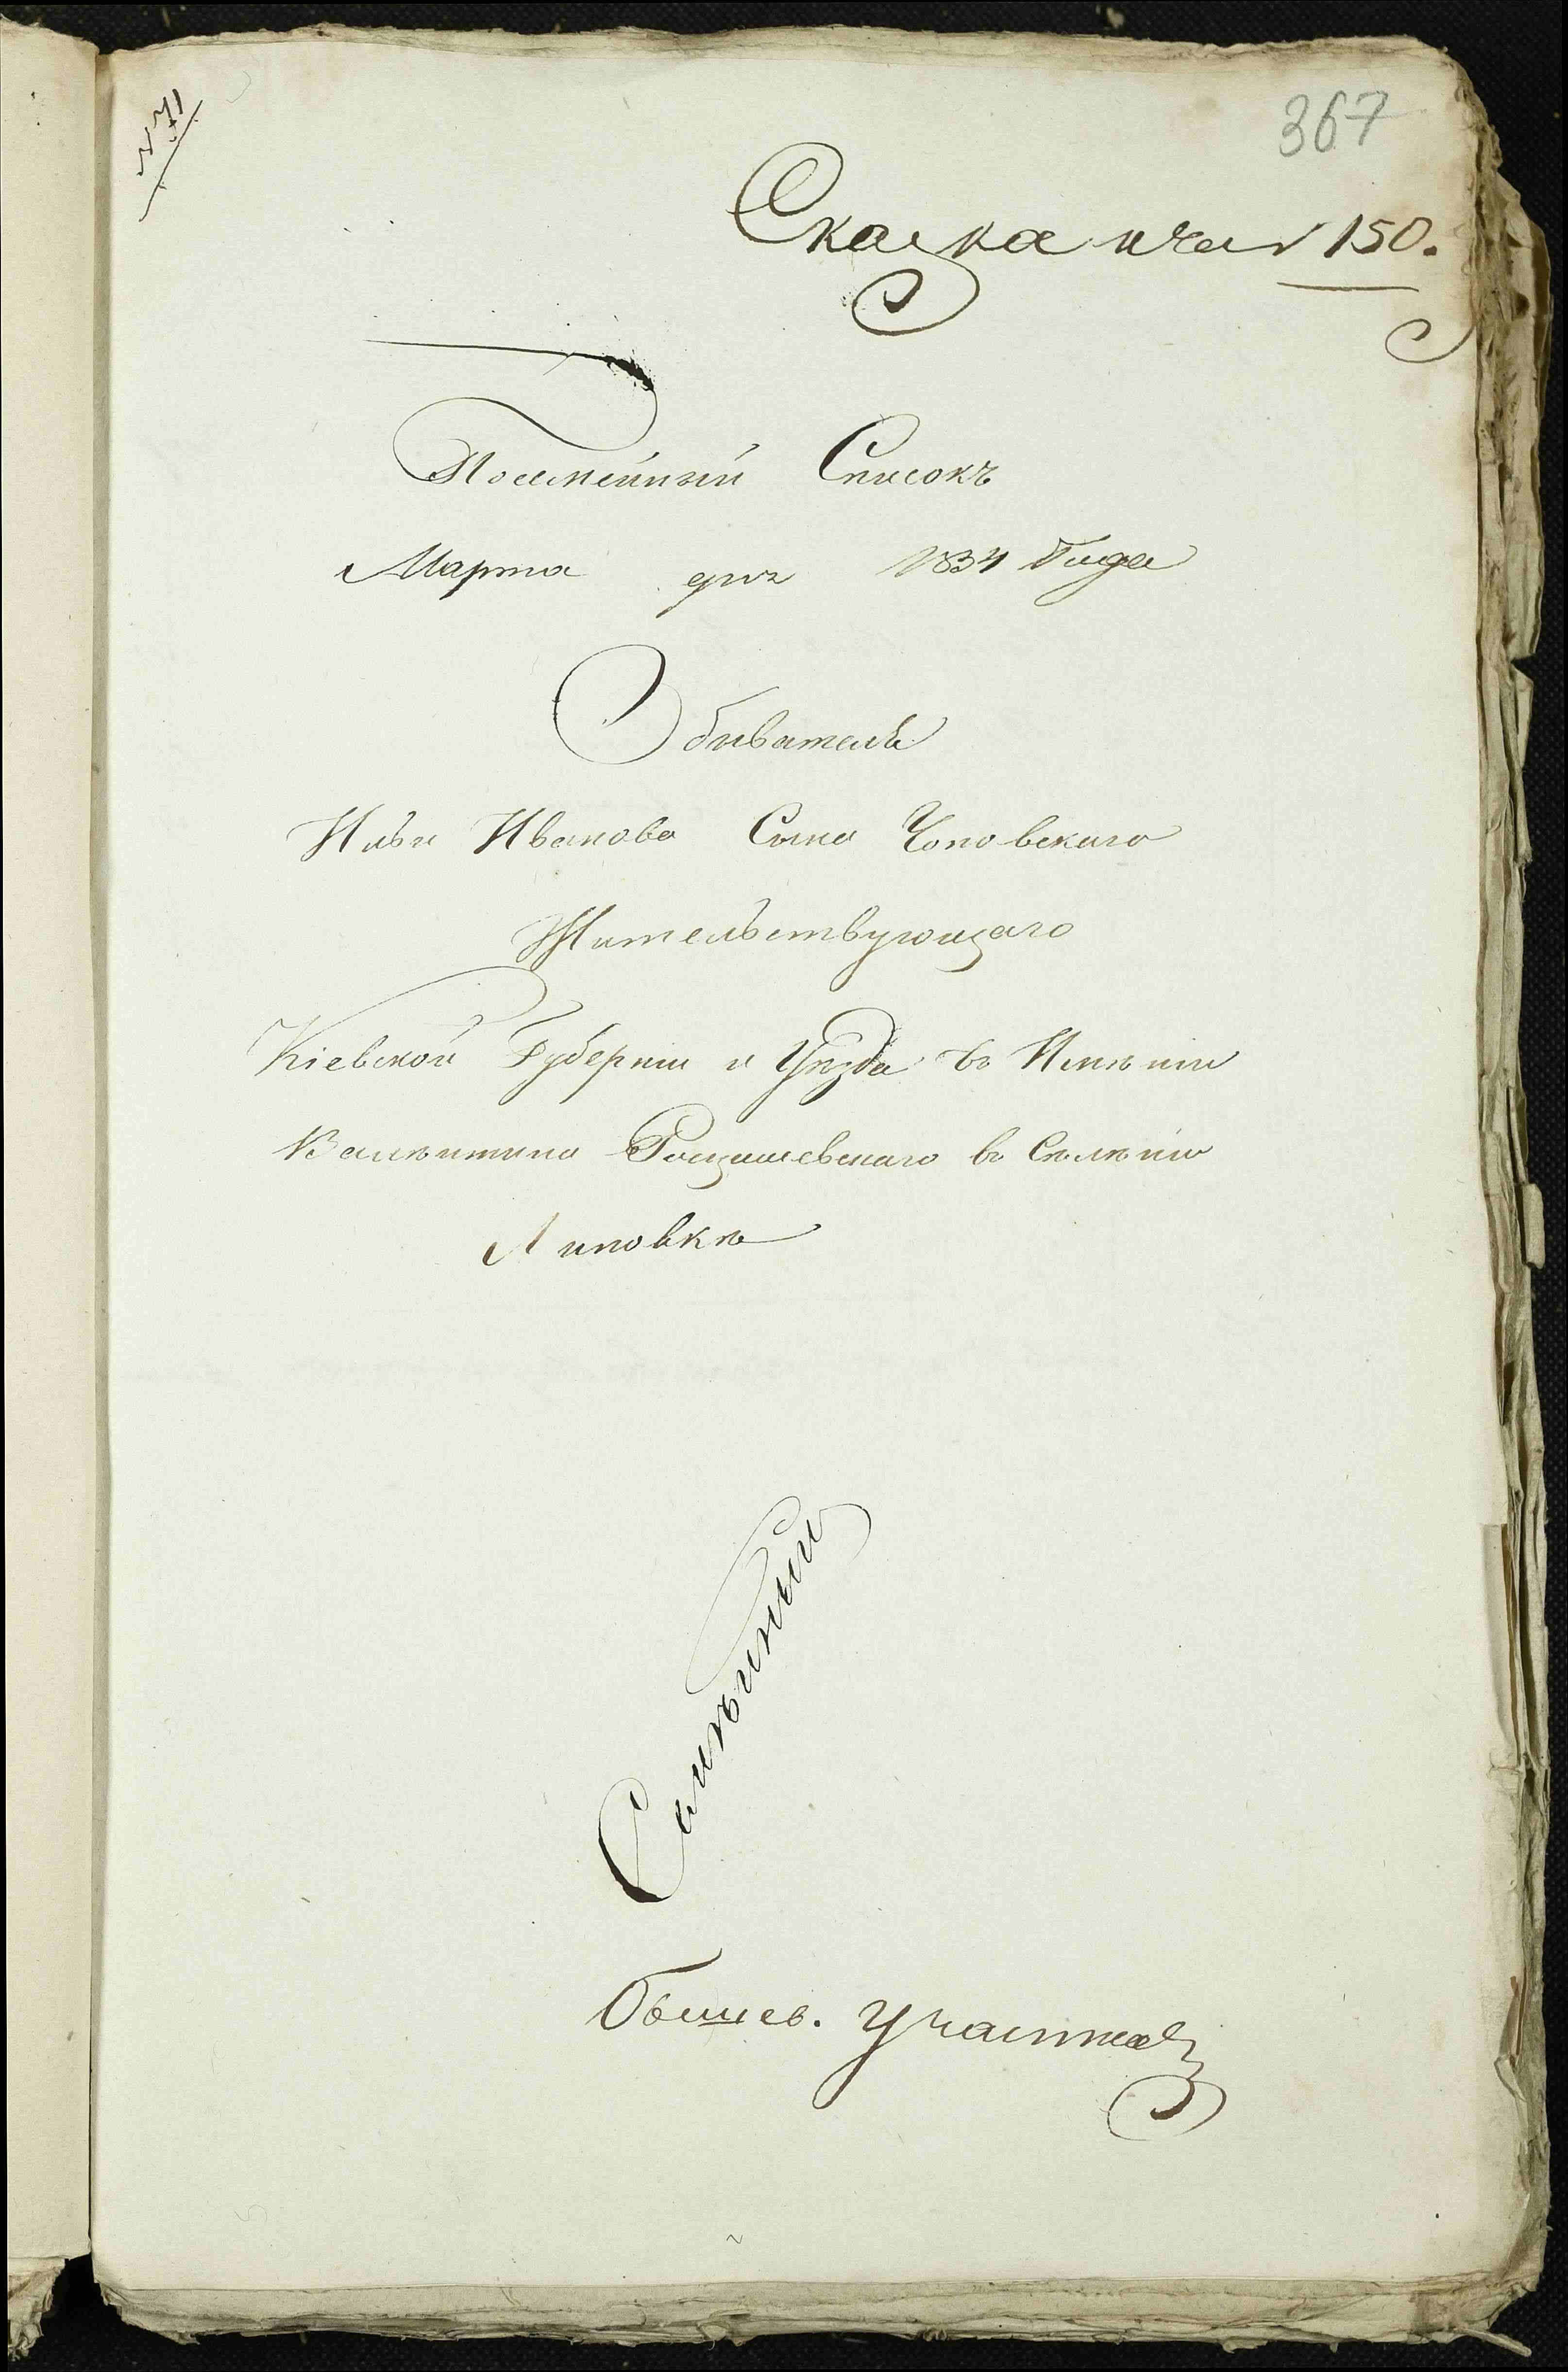 № 71
367
Сказка 150.
Посемейный Списокъ
Марта дня 1834 Года
Обивателя
Ильи Иванова Сына Чоповскаго
Жительствующаго
Кіевской Губерніи и Уѣзда въ Имѣніи
Валѣнтина Росцишевскаго въ Сѣлѣніи
Липовкѣ
Бышев. Участка